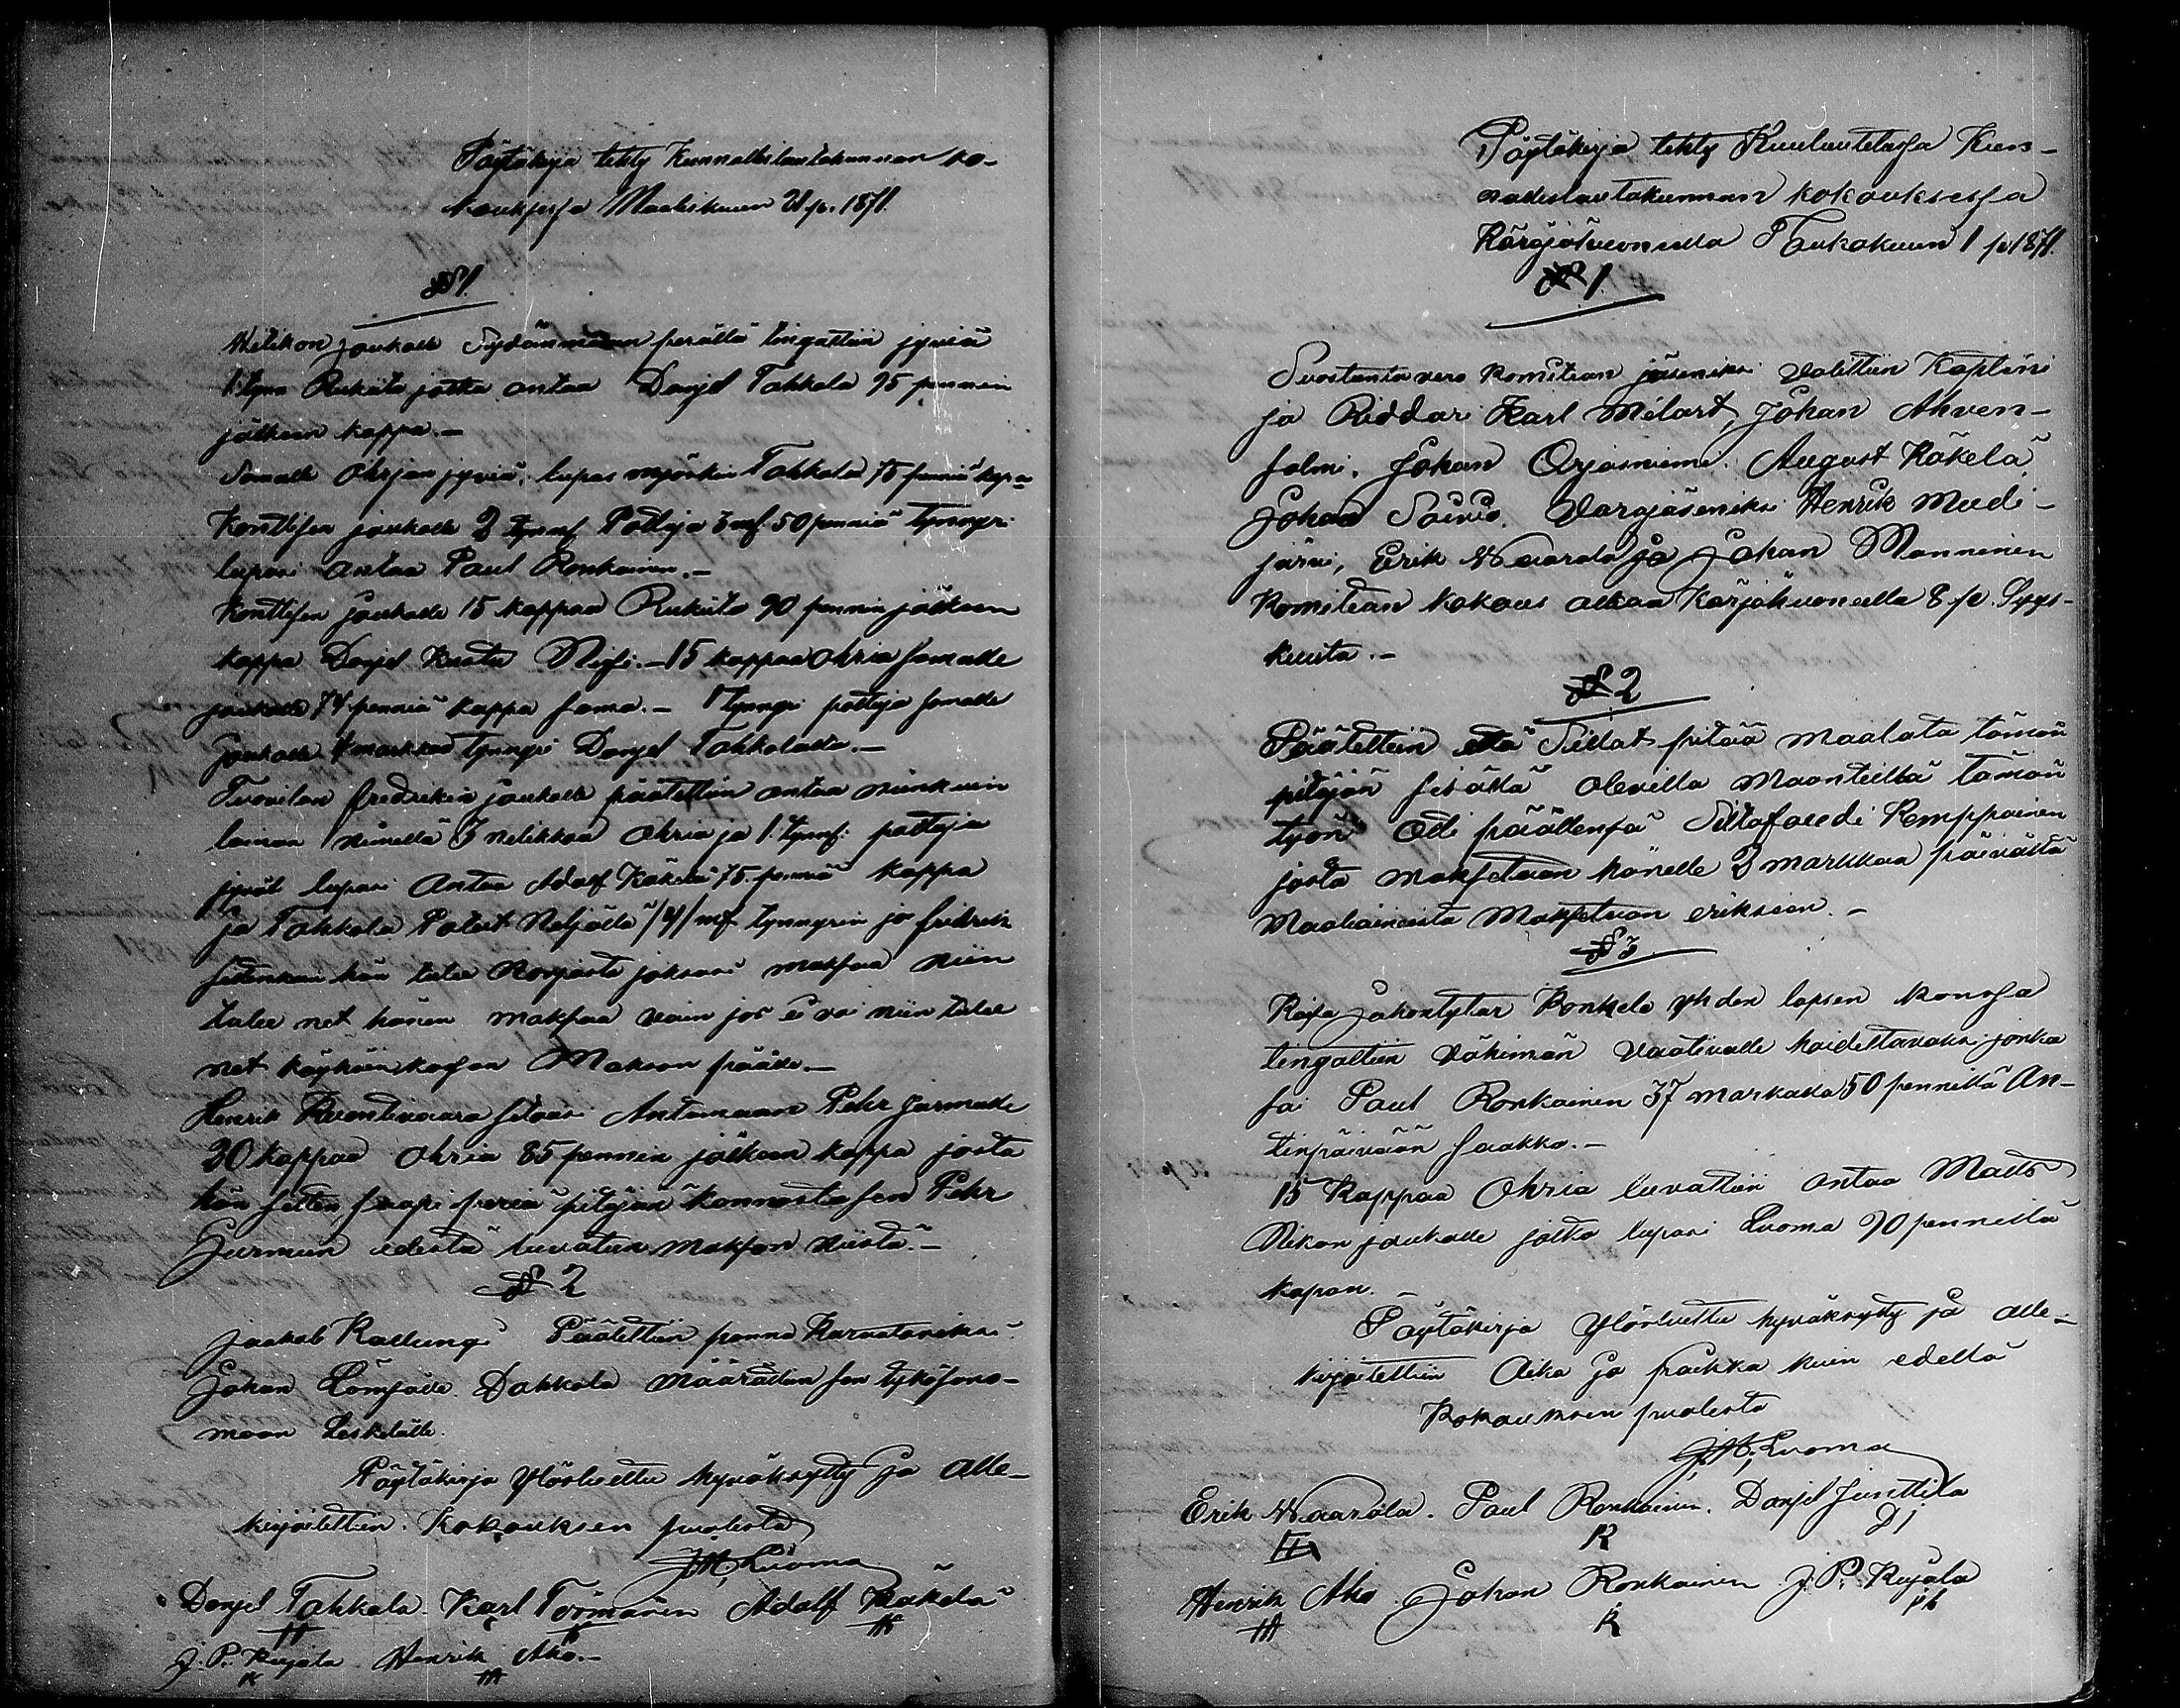 Pöytäkirja tehty Kunnallislautakunnan ko-
kouksessa Maaliskuun 21 p. 1871.
§ 1.
joukolle Sydänmaan perältä tingattiin jyviä
1 tynn Rukiita jotka antaa Danjel Tahkola 95 pennin
jälkeen kappa.-
Samalle Ohrjan jyviä lupas myöskin Tahkola 75 penniä kapa
Konttisen joukolle 2 tynnf Pottoja 3 mf. 50 penniä tynnyri
lupasi antaa Paul Ronkainen.-
Konttisen joukolle 15 kappaa Rukiita 90 pennin jälkeen
kappa Danjel Kustu Nissi.- 15 kappaa ohria samalle
joukolle 74 penniä kappa sama.- 1 tynnyri pottoja samalle
joukolle 4 markkaa tynnyri Danjel Tahkolalta.-
Tuovilan fredrikin joukolle päätettiin antaa niinkuin
lainan nimellä 3 nelikkoa Ohria ja 1. tynnf. pottoja
jyvät lupasi Antaa Adolf Käkelä 75. penniä kappa
ja Tahkola Potut Neljällä /4/ mf tynnyrin ja fridrik
sittenkuin hän tulee Norjasta joksasi maksaa niin
tulee net hänen maksaa vain jos ei voi niin tulee
net köyhäinkassan Makson pääle.-
Henrik Kvontivaara sitousi Antamaan Pehr Jurmulle
30 kappaa Ohria 85 pennin jälkeen kappa josta
hän sitten saapi periä pitäjän konnosta sen Pehr
Jurmun edestä luvatun makson viistä.-
§ 2
Jaakob Kallungi Päätettiin panna Karvataniksi
Johan Lämsälle. Dahkola määrättiin sen tykösano-
maan Leskelälle.
Pöytäkirja Ylösluettu hyväksytty Ja Alle-
kirjoitettiin. Kokouksen puolesta
J.H. Luoma
Danjel Tahkola. Karl Törmänen Adolf Käkelä
J. P. Kujala Henrik Aho.-
Pöytäkirja tehty Kuulutetussa Kun-
nalislautakunnan kokouksessa
Käräjähuoneella Toukokuun 1 p 1871.
§ 1
Suostunta vero Komitean jäseniksi Valittiin Kapteni
ja Riddari Karl Melart, Johan Ahven-
salmi. Johan Orjasniemi. August Käkelä.
Johan Soivio. Varajäseniksi Henrik Mudi-
järvi, Erik Waarala ja Johan Manninen
Komitean kokous alkaa Kärjähuoneella 8 p. Syys-
kuuta.-
§ 2
Päätettiin että Sillat pitää maalata tämän
pitäjän sisällä olevilla Maanteillä tämän
työn Otti päällensä Siltafouti Kemppainen
josta maksetaan hänelle 3 markkaa päivältä
Maaliaineista Maksetaan erikseen.-
§ 3
Kaisa Johantytar Konkelo yhden lapsen konssa
tingattiin vähimän Vaativalle hoidettavaksi jonka
sai Paul Ronkainen 37 markalla 50 pennillä An-
tinpäivään saakka.-
15 Kappaa Ohria luvattiin antaa Matts
Nikan joukolle jotka lupasi Luoma 90 pennillä
kapan.-
Pöytäkirja Ylösluettu hyväksytty ja alle-
kirjoitettiin Aika ja paikka kuin edellä
Kokouksen puolesta
J.H. Luoma
Erik Waarala. Paul Ronkainen. Danjel Junttila
R DJ
Henrik Aho Johan Ronkainen J. P. Kujala
R